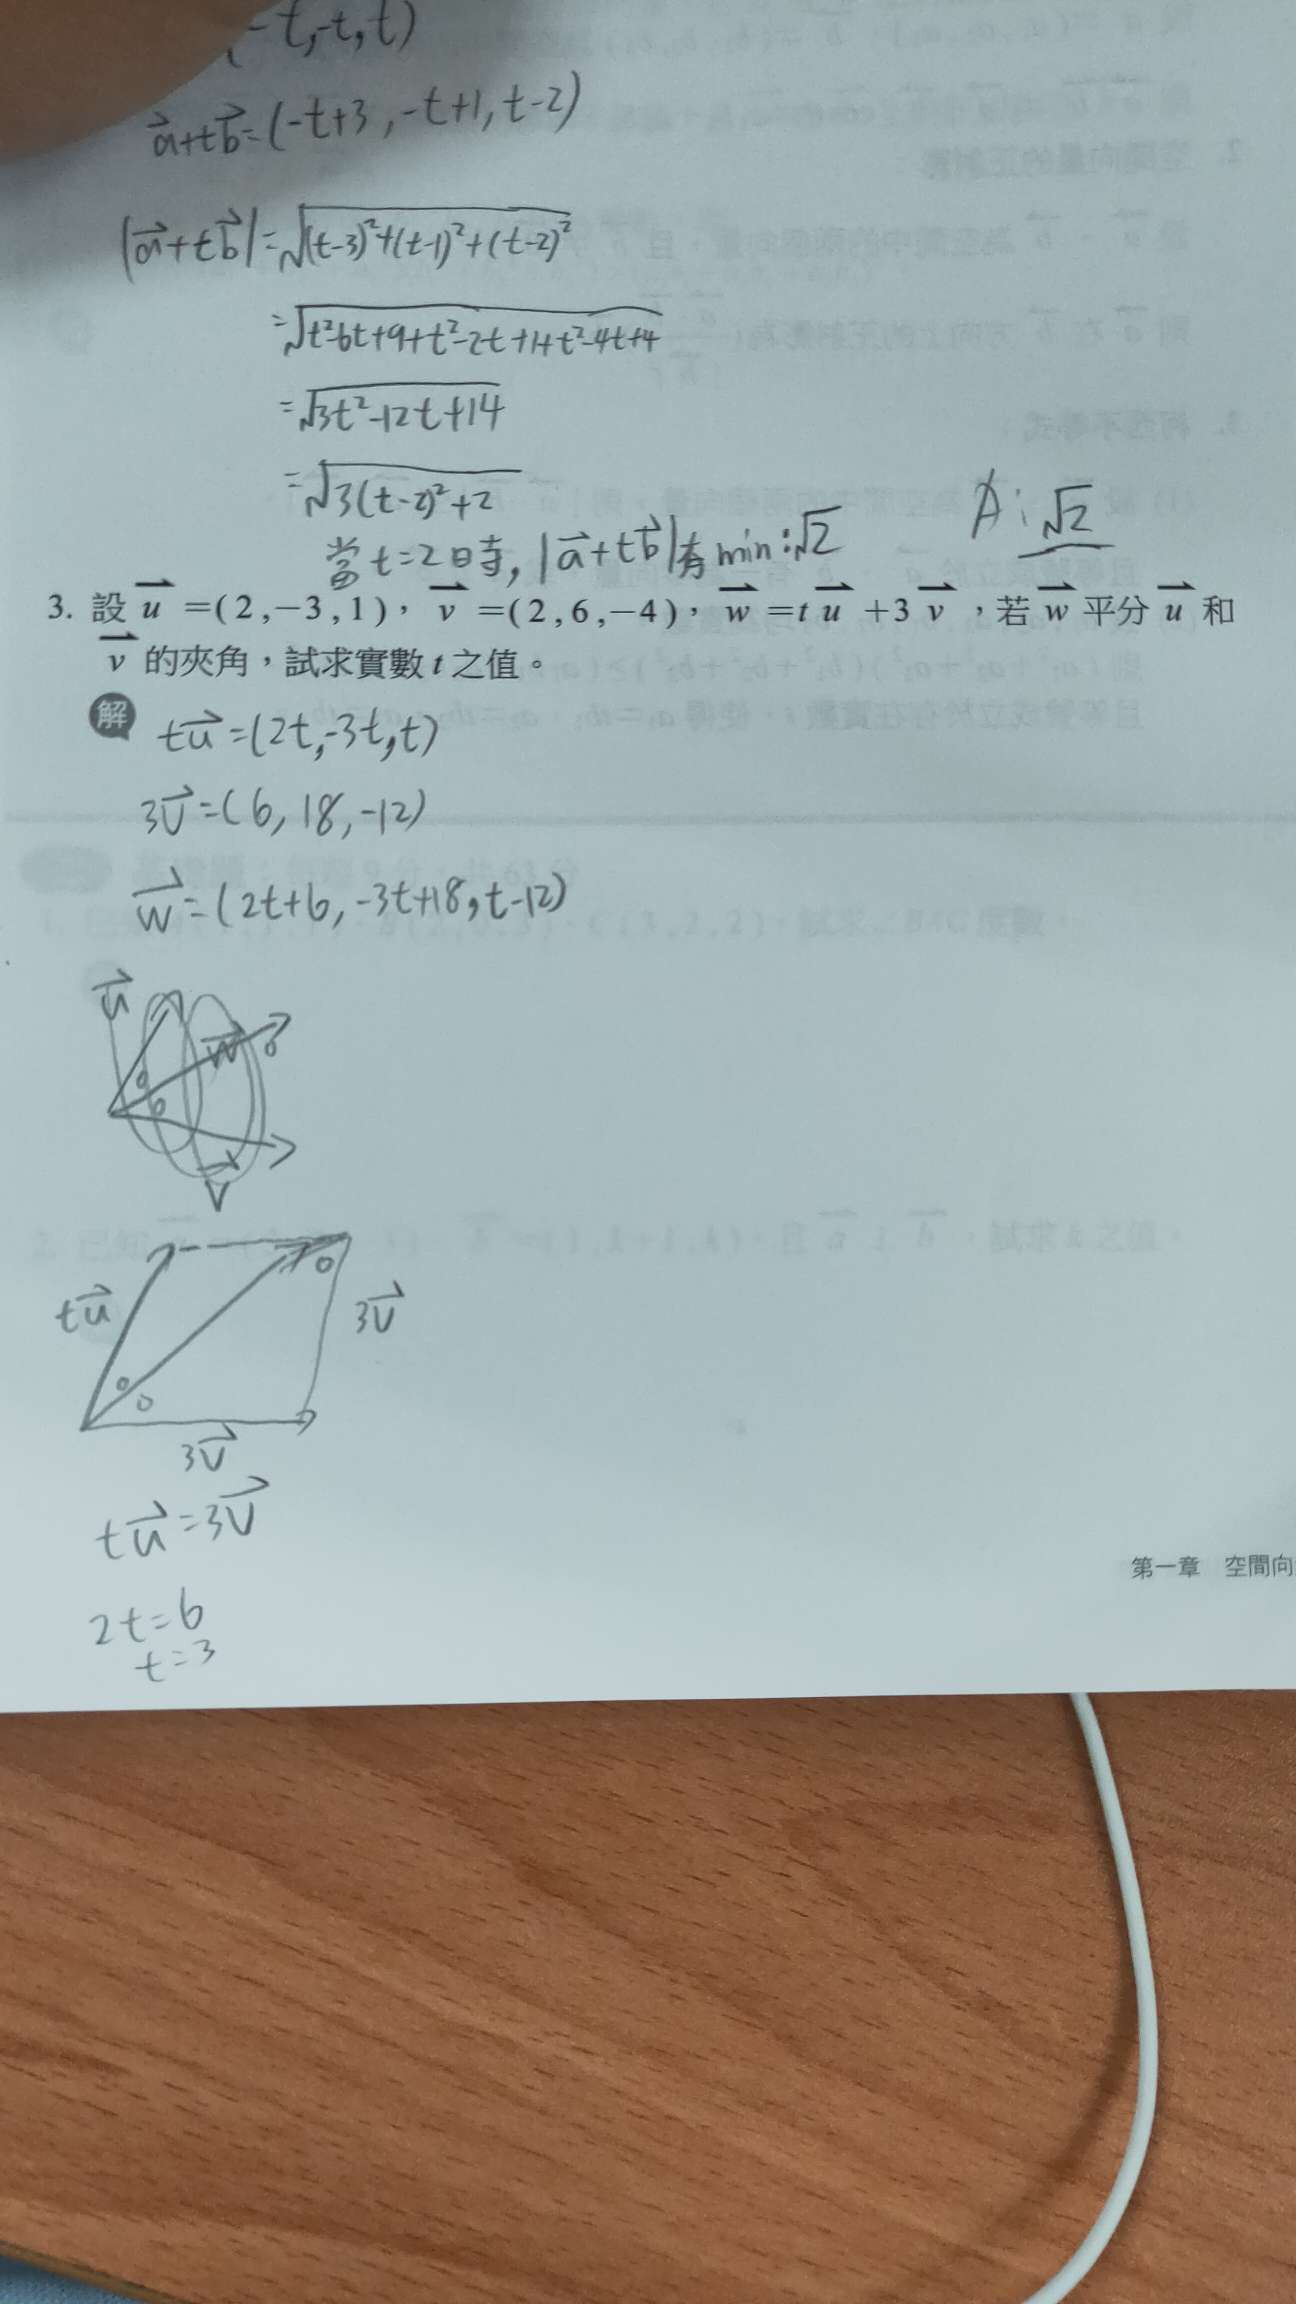 -t,-t,t)
a+tb=(-t+3,-t+1,t-2)
|a+tb|=√(t-3)²+(t-1)²+(t-2)²
=√t²-6t+9+t²-2t+1+t²-4t+4
=√3t²-12t+14
=√3(t-2)²+2
當t=2時,|a+tb|有min:√2
A:√2
3. 設 u =(2,-3,1),v =(2,6,-4),w =t u +3 v ,若 w 平分 u 和
v 的夾角,試求實數 t 之值。
解 tu=(2t,-3t,t)
3v=(6,18,-12)
w=(2t+6,-3t+18,t-12)
u
w
v
tu
3v
3v
tu=3v
2t=6
t=3
第一章 空間向